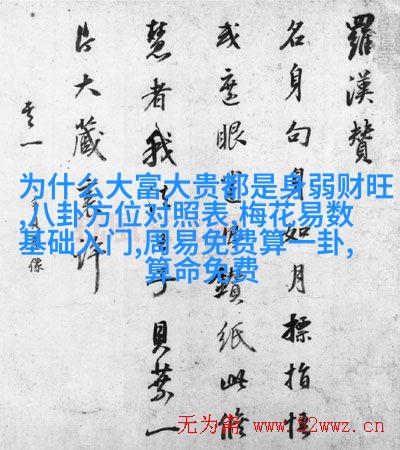 羅漢贊
名身句身如月標指
或遮眼鑽紙此
慧者我子貝葉一
片大藏許
为什么大富大贵都是身弱财旺
,八卦方位对照表,梅花易数
基础入门,周易免费算一卦,
算命免费
无为斋 www.52wwz.cn